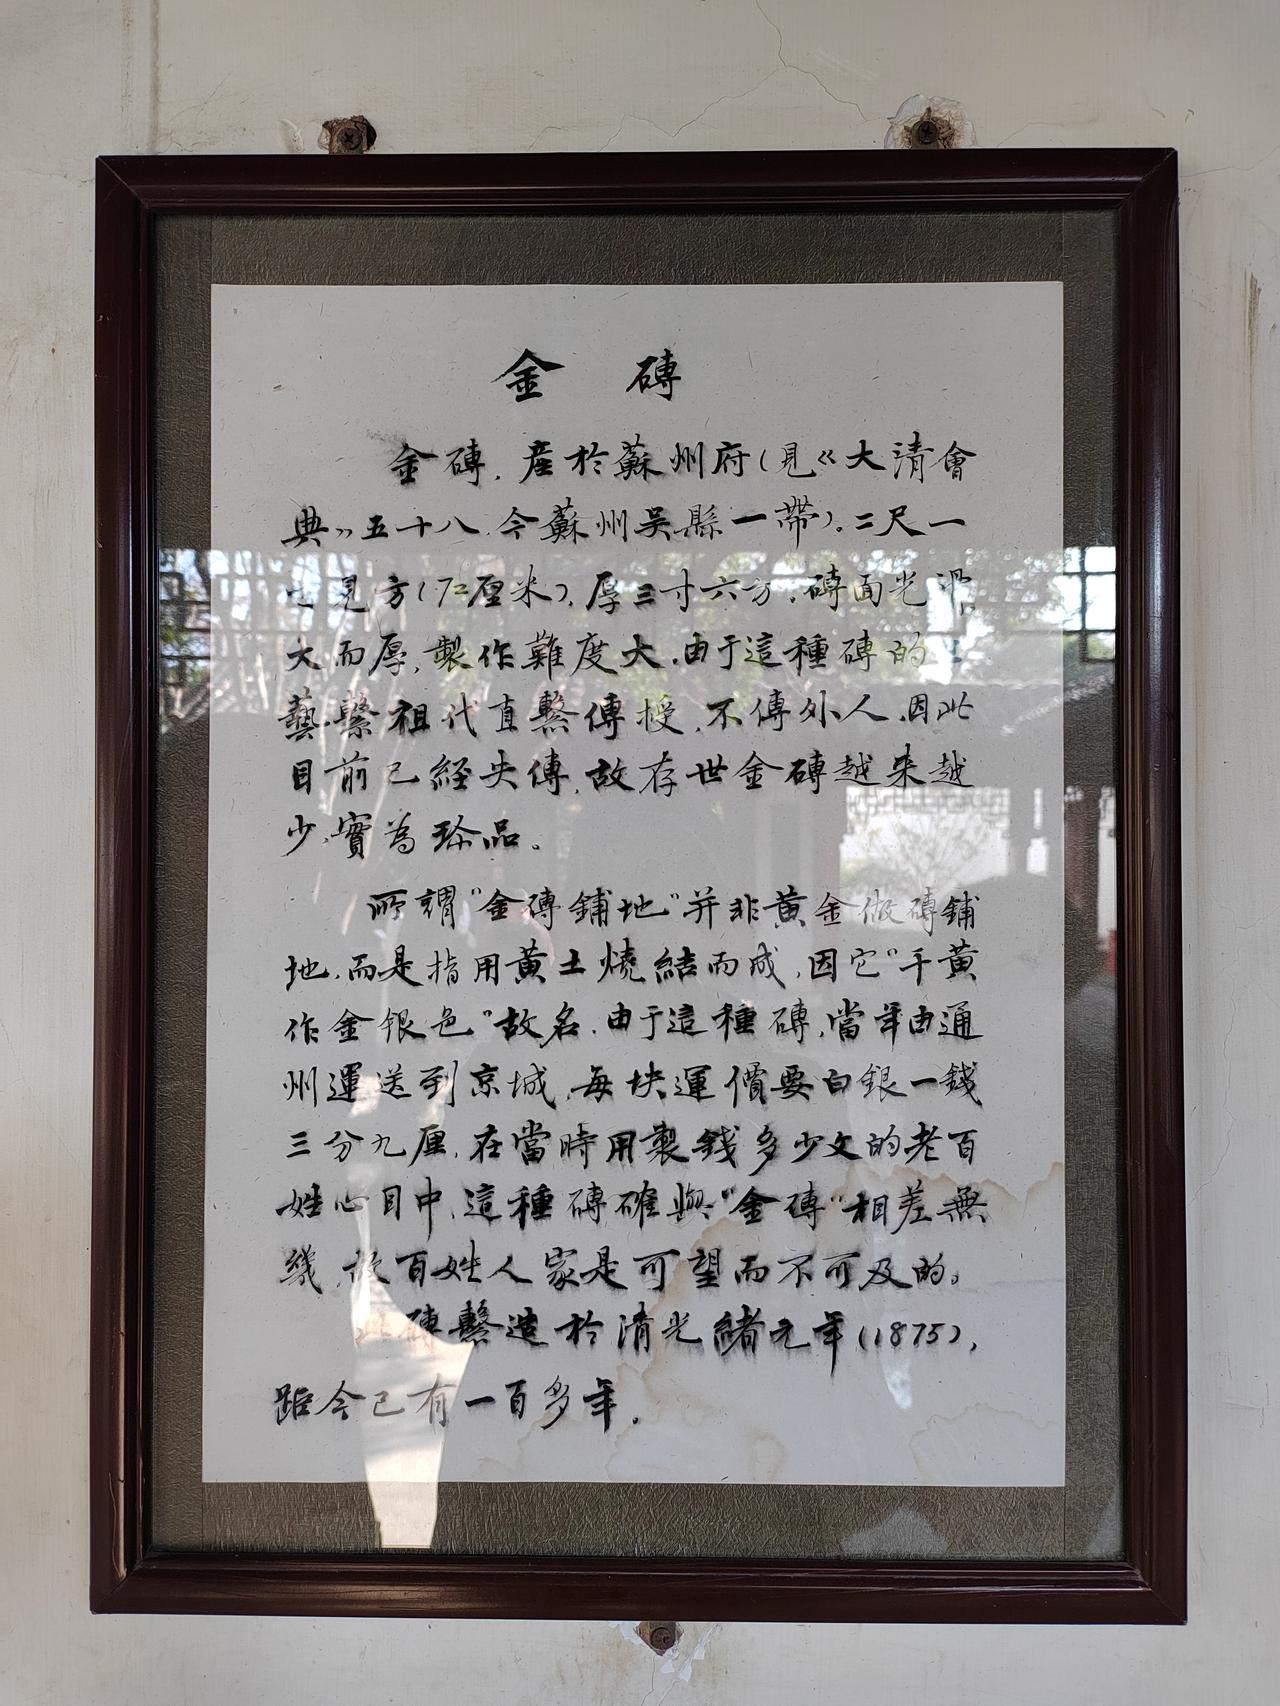 金磚
金磚，産於蘇州府（見《大清會
典》五十八，今蘇州吴縣一帶）。二尺一
寸見方（72厘米），厚三寸六分，磚面光滑，
大而厚，製作難度大。由于這種磚的
藝，繫祖代直繫傳授，不傳外人，因此
目前已經失傳，故存世金磚越来越
少，實為珍品。
所謂“金磚鋪地”并非黄金做磚鋪
地，而是指用黄土燒結而成，因它“干黄
作金银色”故名。由于這種磚，當年由通
州運送到京城，每块運價要白銀一錢
三分九厘，在當時用製錢多少文的老百
姓心目中，這種磚確與“金磚”相差無
幾，故百姓人家是可望而不可及的。
此磚繫造於清光緒元年（1875），
距今已有一百多年。